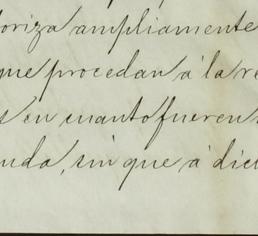 oriza ampliamente
que procedan á la re
s en cuanto fueren
uda, sin que á dic